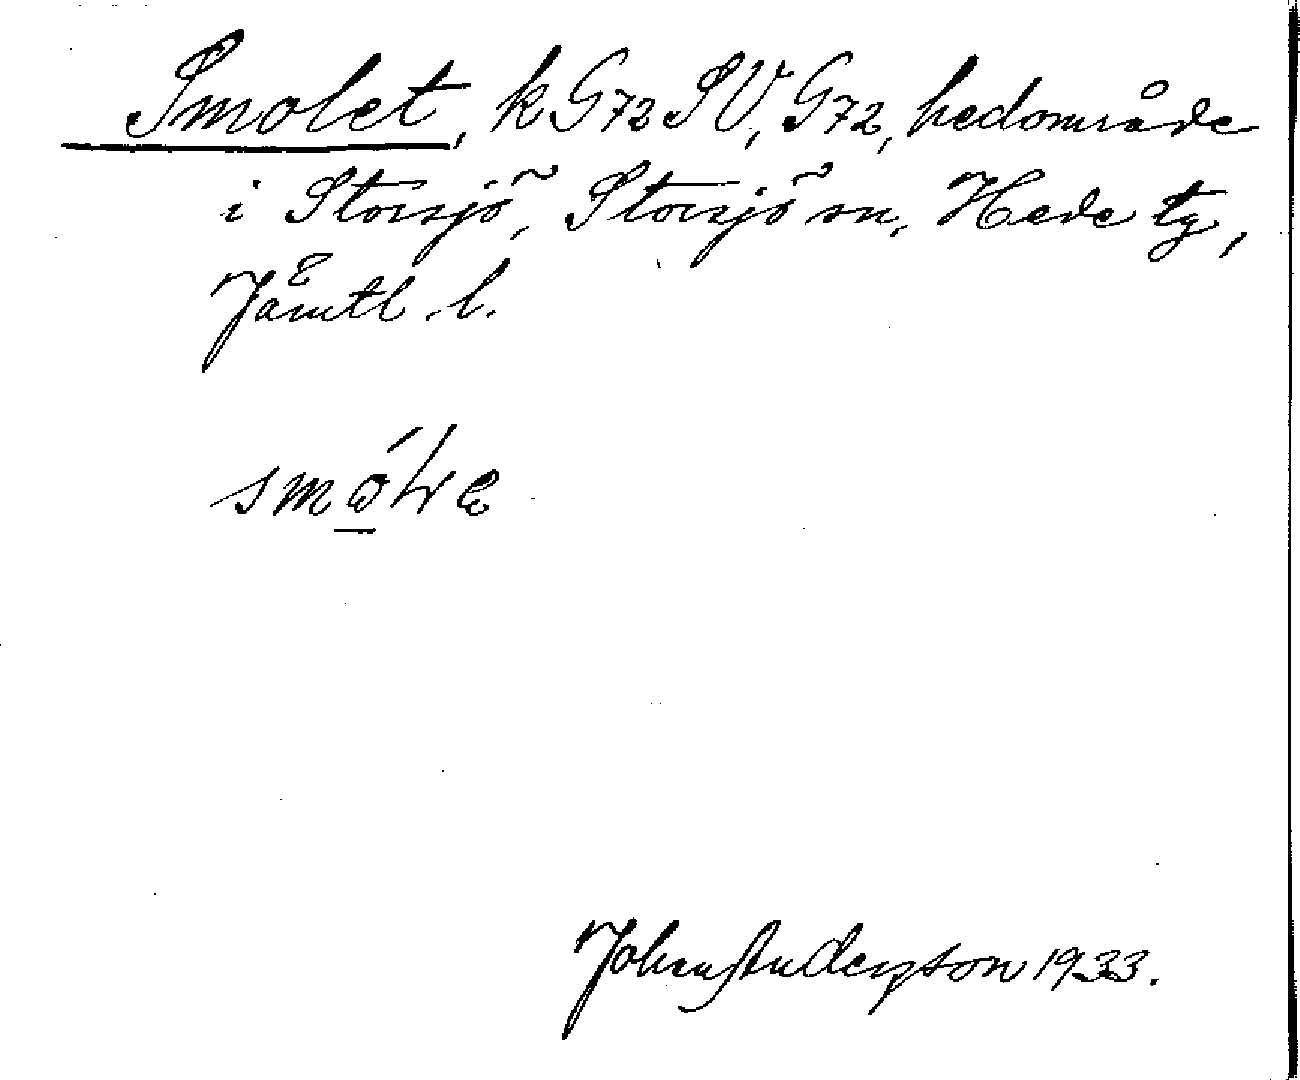 Smolet, k G72 SV, G72, hedområde
i Storsjö, Storsjö sn, Hede tg,
Jämtl. l.
Johan Anderzson 1933.